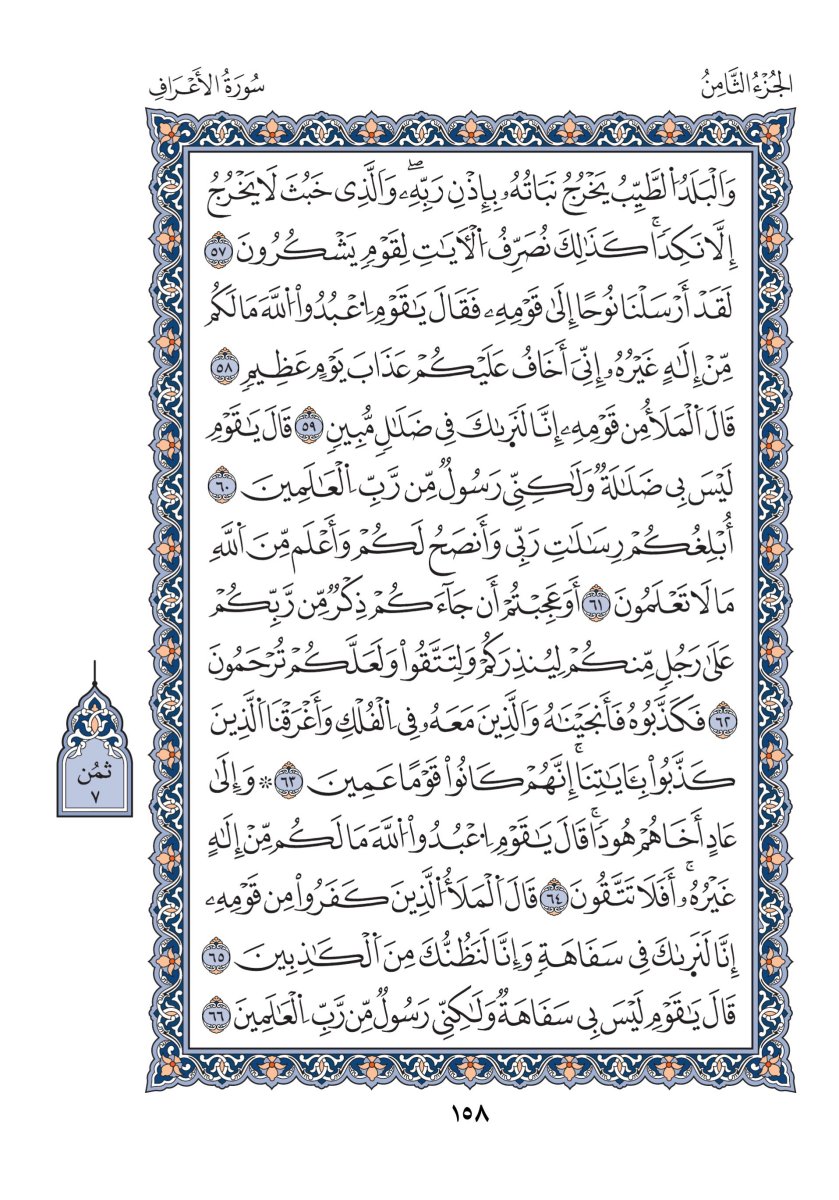 الجُزْءُ الثَّامِنُ
سُورَةُ الأَعْرَافِ
وَالْبَلَدُ الطَّيِّبُ يَخْرُجُ نَبَاتُهُۥ بِإِذْنِ رَبِّهِۦۖ وَالَّذِى خَبُثَ لَا يَخْرُجُ
إِلَّا نَكِدًاۚ كَذَٰلِكَ نُصَرِّفُ الْأَيَٰتِ لِقَوْمٍ يَشْكُرُونَ ٥٧
لَقَدْ أَرْسَلْنَا نُوحًا إِلَىٰ قَوْمِهِۦ فَقَالَ يَٰقَوْمِ اِعْبُدُواْ اللَّهَ مَا لَكُم
مِّنْ إِلَٰهٍ غَيْرُهُۥ إِنِّىَ أَخَافُ عَلَيْكُمْ عَذَابَ يَوْمٍ عَظِيمٍ ٥٨
قَالَ الْمَلَأُ مِن قَوْمِهِۦ إِنَّا لَنَرَىٰكَ فِى ضَلَٰلٍ مُّبِينٍ ٥٩ قَالَ يَٰقَوْمِ
لَيْسَ بِى ضَلَٰلَةٌ وَلَٰكِنِّى رَسُولٌ مِّن رَّبِّ اِلْعَٰلَمِينَ ٦٠
أُبْلِغُكُمْ رِسَٰلَٰتِ رَبِّى وَأَنصَحُ لَكُمْ وَأَعْلَم مِّنَ اَللَّهِ
مَا لَا تَعْلَمُونَ ٦١ أَوَعَجِبْتُمْ أَن جَآءَكُمْ ذِكْرٌ مِّن رَّبِّكُمْ
عَلَىٰ رَجُلٍ مِّنكُمْ لِيُنذِرَكُمْ وَلِتَتَّقُواْ وَلَعَلَّكُمْ تُرْحَمُونَ
٦٢ فَكَذَّبُوهُ فَأَنجَيْنَٰهُ وَالَّذِينَ مَعَهُۥ فِى اِلْفُلْكِ وَأَغْرَقْنَا اَلَّذِينَ
كَذَّبُواْ بِـَٔايَٰتِنَاۚ إِنَّهُمْ كَانُواْ قَوْمًا عَمِينَ ٦٣ ۞ وَإِلَىٰ
عَادٍ أَخَاهُمْ هُودًاۚ قَالَ يَٰقَوْمِ اِعْبُدُواْ اللَّهَ مَا لَكُم مِّنْ إِلَٰهٍ
غَيْرُهُۥٓۚ أَفَلَا تَتَّقُونَ ٦٤ قَالَ الْمَلَأُ الَّذِينَ كَفَرُواْ مِن قَوْمِهِۦ
إِنَّا لَنَرَىٰكَ فِى سَفَاهَةٍ وَإِنَّا لَنَظُنُّكَ مِنَ اَلْكَٰذِبِينَ ٦٥
قَالَ يَٰقَوْمِ لَيْسَ بِى سَفَاهَةٌ وَلَٰكِنِّى رَسُولٌ مِّن رَّبِّ اِلْعَٰلَمِينَ ٦٦
ثُمُن
٧
١٥٨